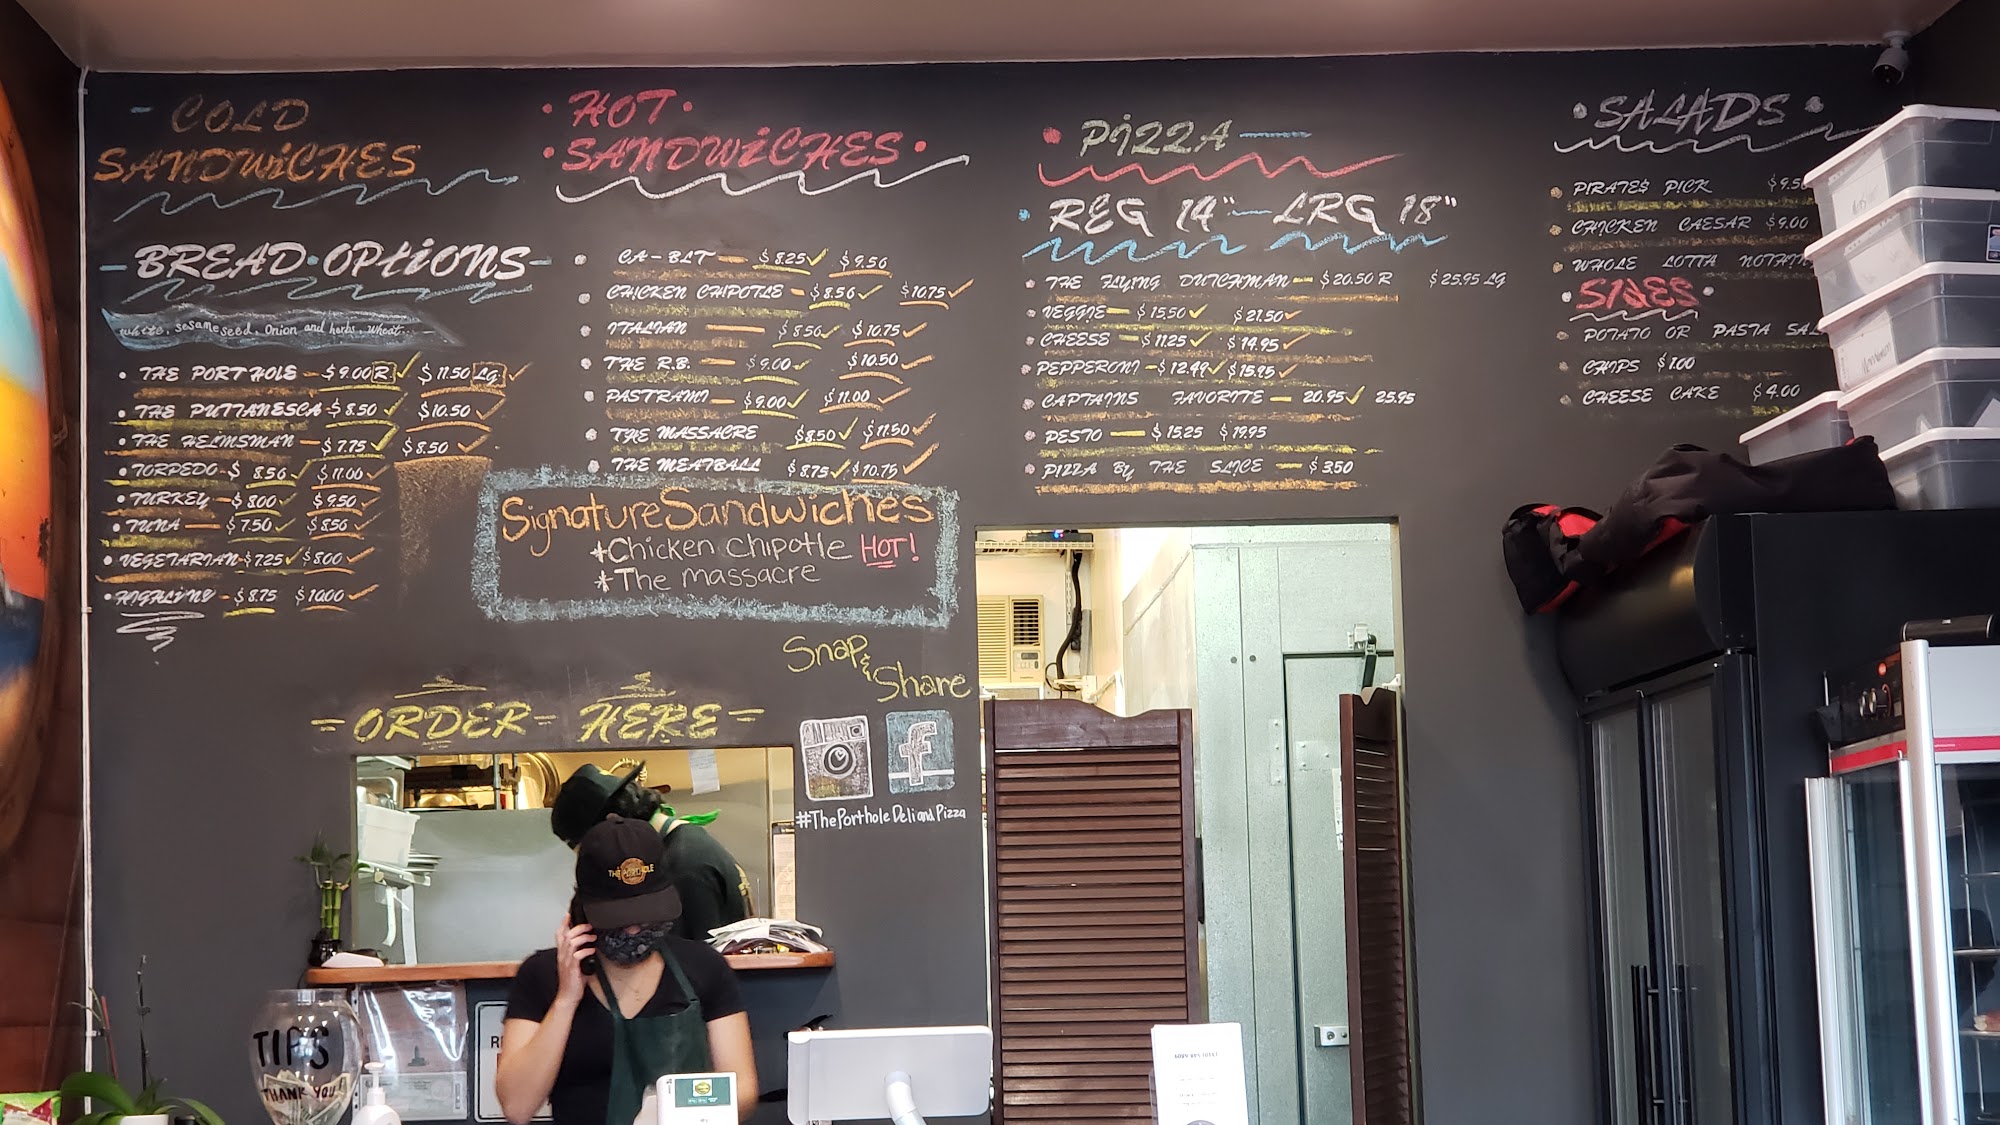 COLD
SANDWiCHES
BREAD • OPtiONS
white, sesame seed, onion and herbs, wheat...
• THE PORTHOLE - $9.00 R ✓ $11.50 LG ✓
• THE PUTTANESCA - $8.50 ✓ $10.50 ✓
• THE HELMSMAN - $7.75 ✓ $8.50 ✓
• TORPEDO - $8.50 ✓ $11.00 ✓
• TURKEY - $8.00 ✓ $9.50 ✓
• TUNA - $7.50 ✓ $8.50 ✓
• VEGETARIAN - $7.25 ✓ $8.00 ✓
• $8.75 $10.00 ✓
• HOT •
• SANDWiCHES •
• CA-BLT - $8.25 ✓ $9.50
• CHICKEN CHIPOTLE - $8.50 ✓ $10.75 ✓
• ITALIAN - $8.50 ✓ $10.75 ✓
• THE R.B. - $9.00 ✓ $10.50 ✓
• PASTRAMI - $9.00 ✓ $11.00 ✓
• THE MASSACRE $8.50 ✓ $11.50 ✓
• THE MEATBALL $8.75 ✓ $10.75 ✓
Signature Sandwiches
*Chicken Chipotle HOT!
*The massacre
• PiZZA -
• REG 14" - LRG 18"
• THE FLYING DUTCHMAN - $20.50 R $25.95 LG
• VEGGIE - $15.50 ✓ $21.50 ✓
• CHEESE - $11.25 ✓ $14.95 ✓
• PEPPERONI - $12.49 ✓ $15.95 ✓
• CAPTAINS FAVORITE - 20.95 ✓ 25.95
• PESTO - $15.25 $19.95
• PIZZA BY THE SLICE - $3.50
• SALADS •
• PIRATE$ PICK $9.50
• CHICKEN CAESAR $9.00
• WHOLE LOTTA NOTHIN
• SIDES •
• POTATO OR PASTA SAL
• CHIPS $1.00
• CHEESE CAKE $4.00
Snap &
Share
f
#ThePortholeDeliandPizza
= ORDER - HERE =
THE PORTHOLE
TIPS
THANK YOU!